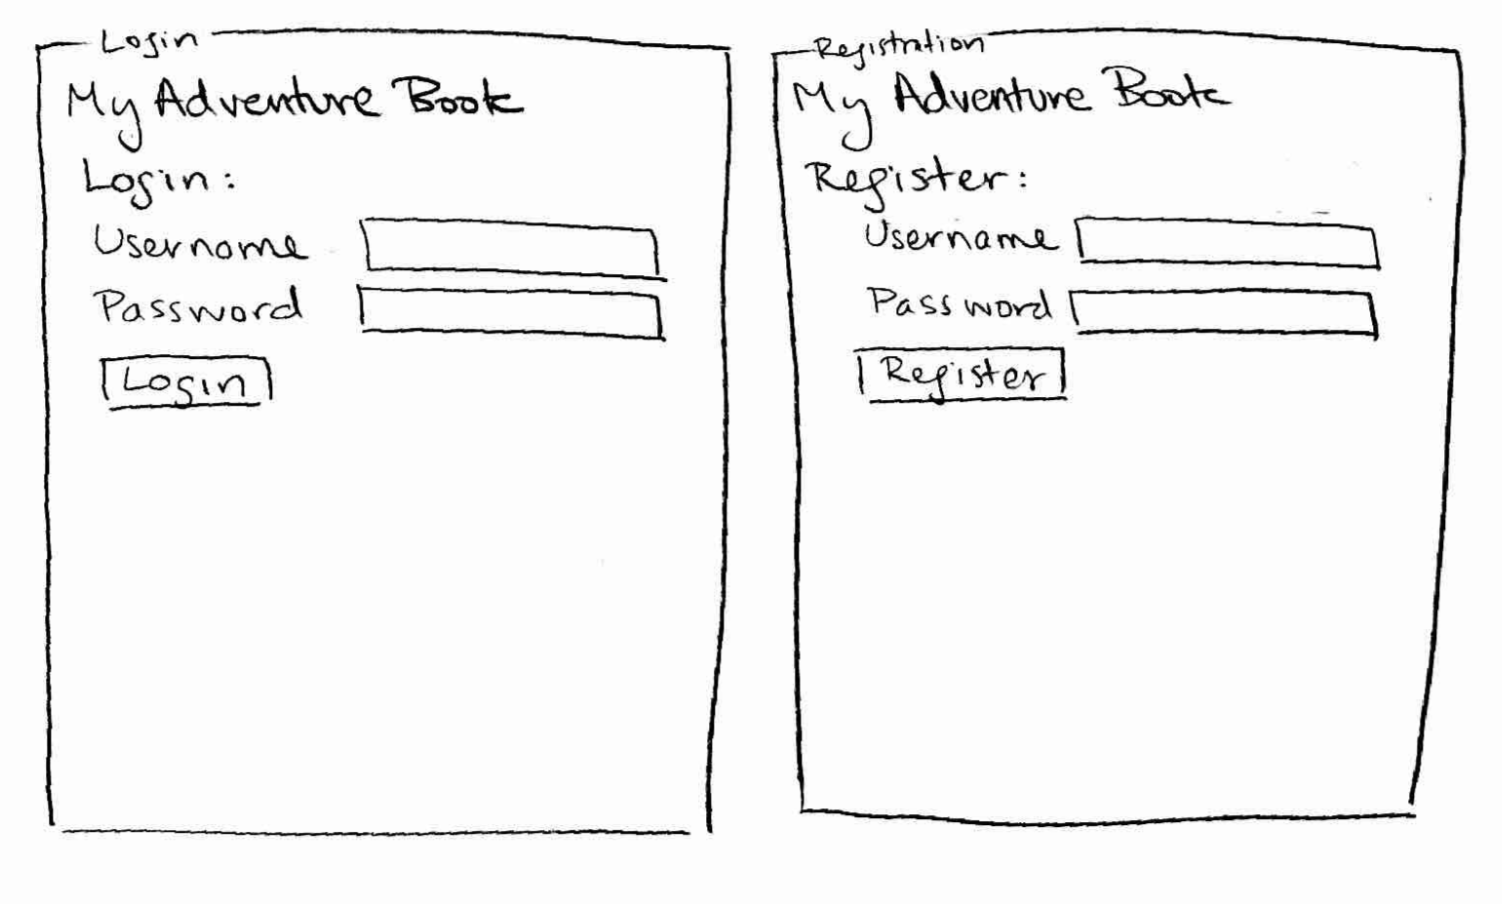 Login
My Adventure Book
Login:
Username
Password
Login
Registration
My Adventure Book
Register:
Username
Password
Register